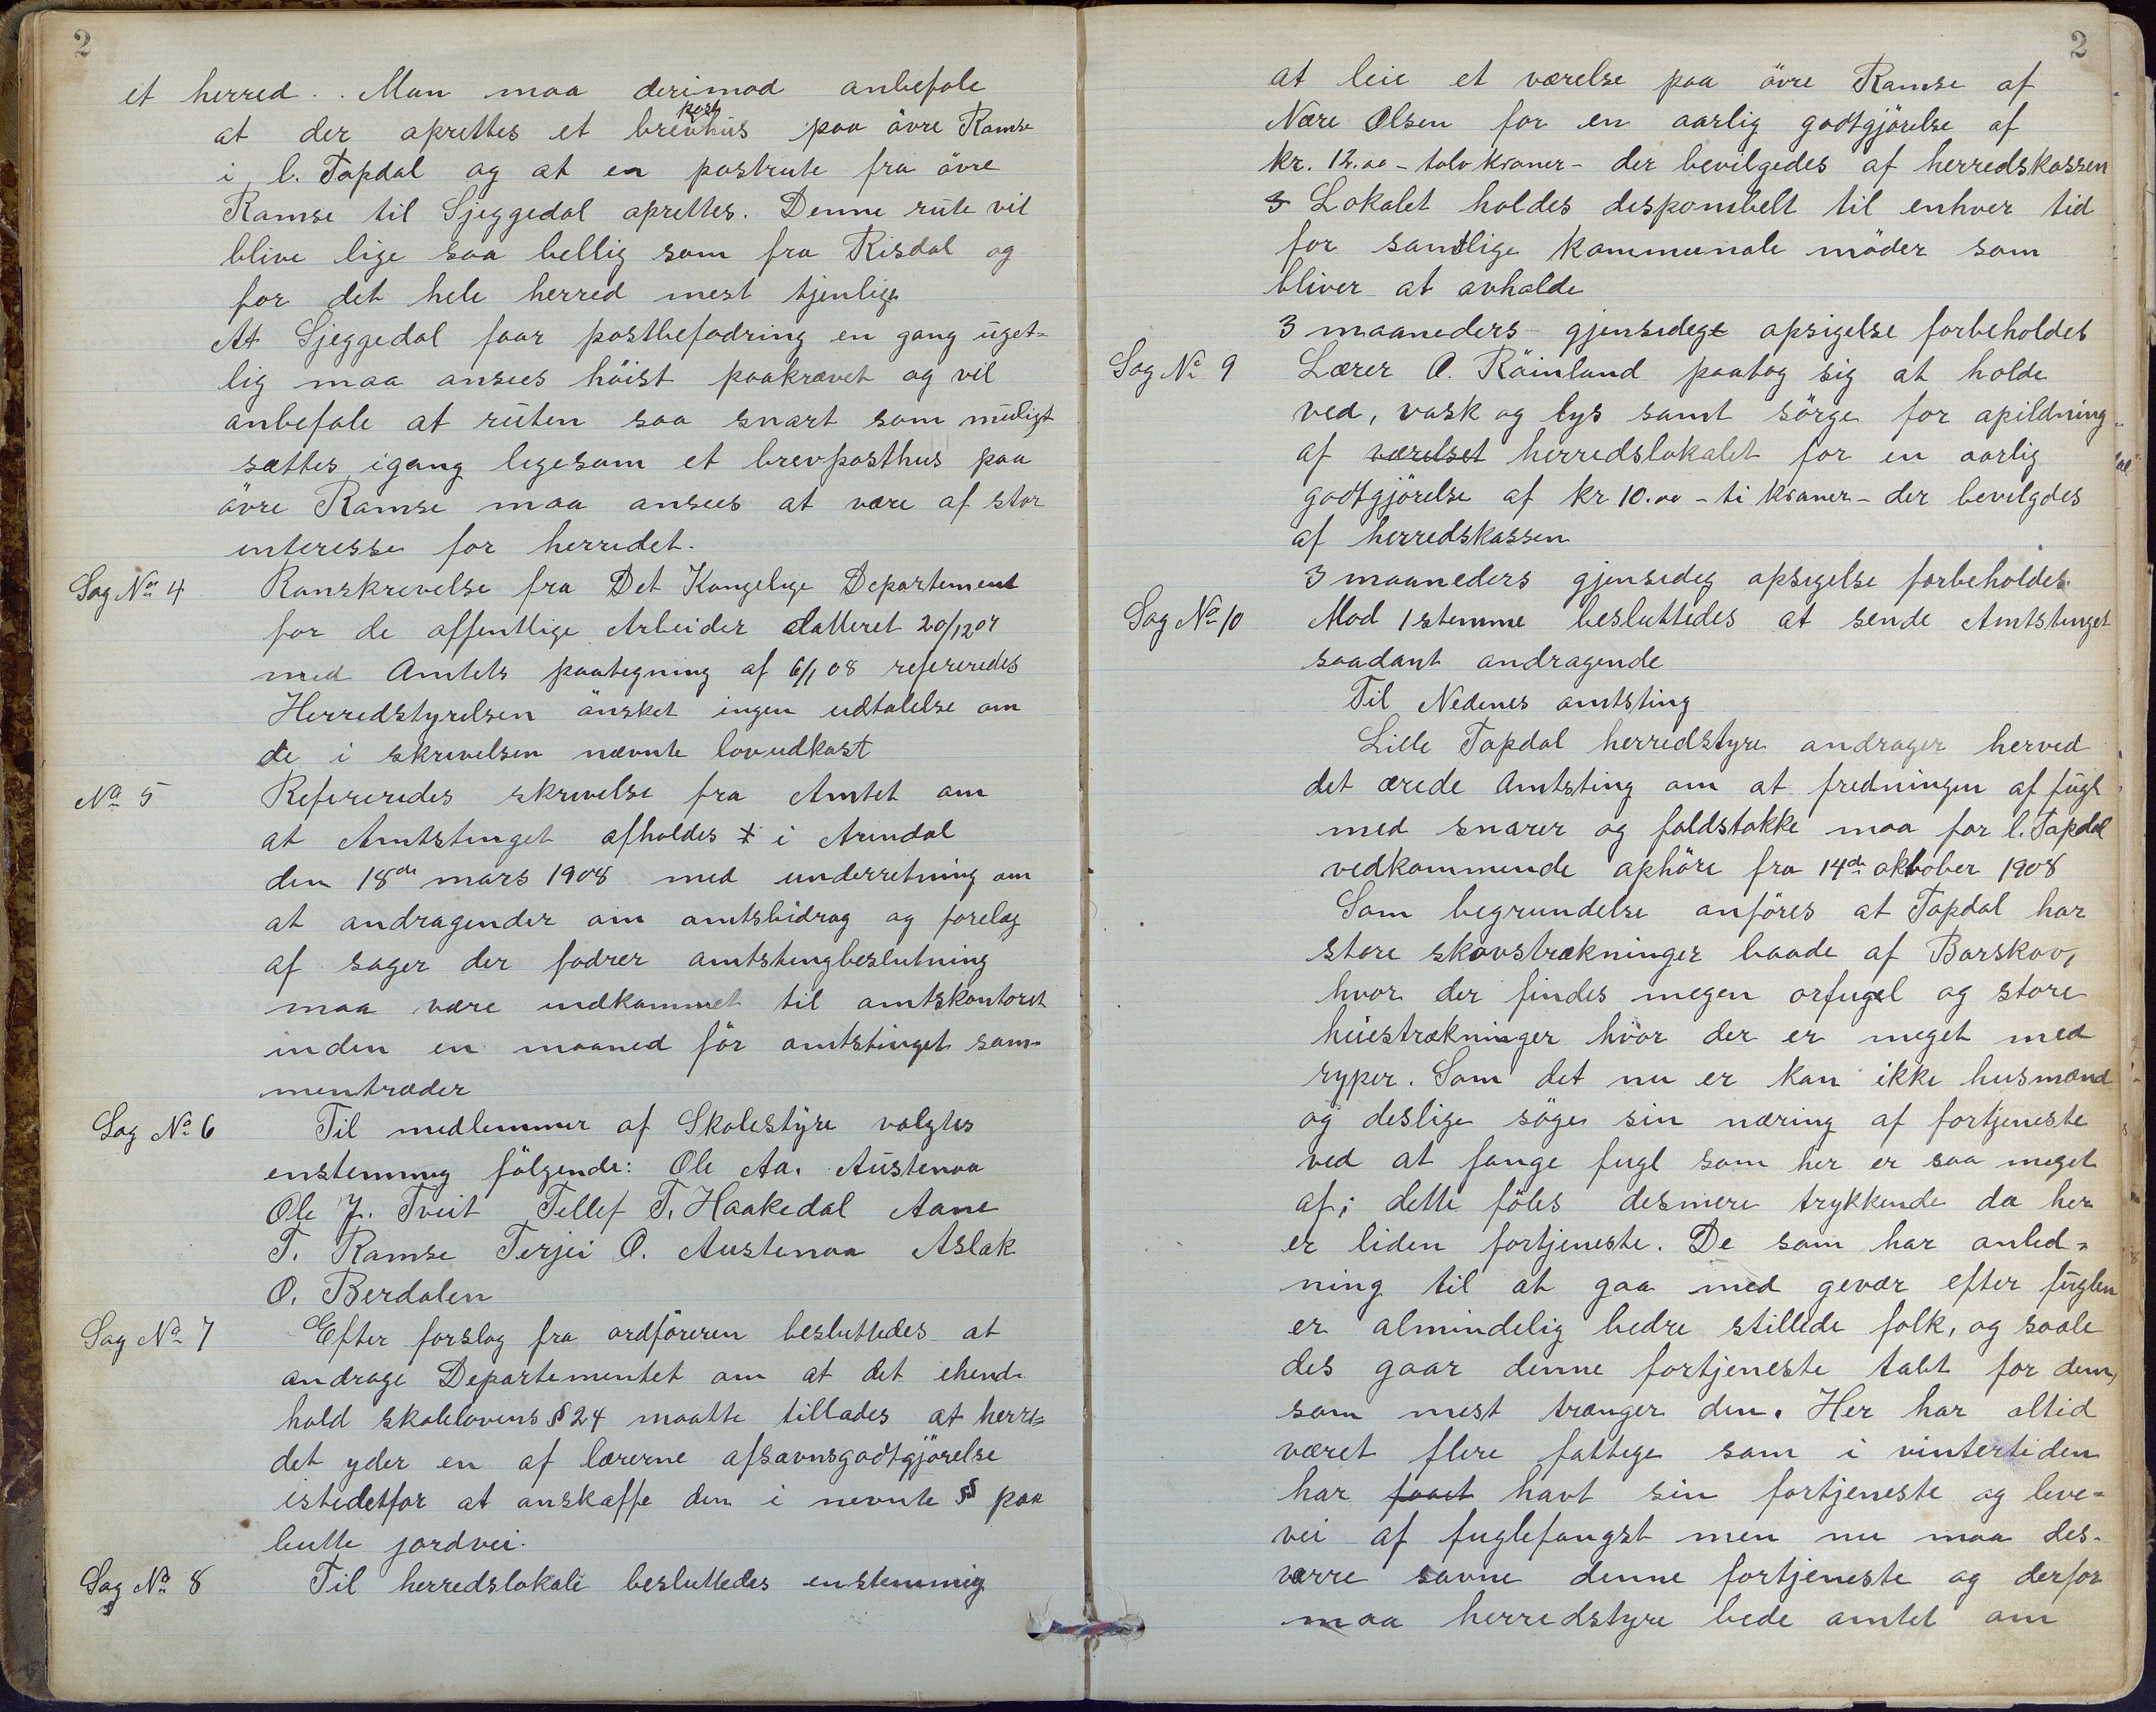 2
et herred. Man maa derimod anbefale
at der oprettes et brevposthus paa övre Ramse
i l. Topdal og at en postrute fra övre
Ramse til Gjeggedal oprettes. Denne rute vil
blive lige saa bellig som fra Risdal og
for det hele herred mest tjenlig
At Gjeggedal faar postbefodring en gang uget-
lig maa ansees höist paakrævet og vil
anbefale at ruten saa snart som muligt
sættes igang ligesom et brevposthus paa
övre Ramse maa ansees at være af stor
interesse for herredet.
Sag No 4 Runskrivelse fra Det Kongelige Departement
for de offentlige Arbeider datteret 20/12 07
med Amtets paategning af 6/1 08 refereredes
Herredstyrelsen önsket ingen udtalelse om
de i skrivelsen nævnte lovudkast
No 5 Refereredes skrivelse fra Amtet om
at Amtstinget afholdes i Arendal
den 18de mars 1908 med underretning om
at andragender om amtsbidrag og forelæg
af sager der fodrer amtstingbeslutning
maa være indkommet til amtskontoret
inden en maaned för amtstinget sam-
mentræder
Sag No 6 Til medlemmer af Skolestyre valgtes
enstemmig fölgende: Ole Aa. Austenaa
Ole J. Tveit Tellef T. Haakedal Aane
T. Ramse Terjei O. Austenaa Aslak
O. Berdalen
Sag No 7 Efter forslag fra ordföreren besluttedes at
andrage Departementet om at det ehend-
hold skolelovens § 24 maatte tillades at herre-
det yder en af lærerne afsavnsgodtgjörelse
istedetfor at anskaffe den i nevnte § paa
butte jordvei.
Sag No 8 Til herredslokale besluttedes enstemmig
2
at leie et værelse paa övre Ramse af
Nære Olsen for en aarlig godtgjörelse af
kr. 12.00 - tolv kroner - der bevilgedes af herredskassen
Lokalet holdes desponibelt til enhver tid
for samtlige kommunale möder som
bliver at avholde
3 maaneders gjensideg opsigelse forbeholdes
Sag No 9 Lærer O. Röinland paatog sig at holde
ved, vask og lys samt sörge for opildning
af værelset herredslokalet for en aarlig
godtgjörelse af kr 10.00 - ti kroner - der bevilgdes
af herredskassen
3 maaneders gjensideg opsigelse forbeholdes
Sag No 10 Mod 1 stemme besluttedes at sende Amtstinget
saadant andragende
Til Nedenes amtsting
Lille Topdal herredstyre andrager herved
det ærede Amtsting om at fredningen af fugl
med snarer og faldstokke maa for l. Topdal
vedkommende ophöre fra 14de oktober 1908
Som begrundelse anföres at Topdal har
store skovstrækninger baade af Barskov,
hvor der findes megen orfugel og store
heiestrækninger hvor der er meget med
ryper. Som det nu er kan ikke husmænd
og deslige söge sin næring af fortjeneste
ved at fange fugl som her er saa meget
af; dette föles desmere trykkende da her
er liden fortjeneste. De som har anled-
ning til at gaa med gevær efter fuglen
er almindelig bedre stillede folk, og saale
des gaar denne fortjeneste tabt for dem,
som mest trænger den. Her har altid
været flere fattige som i vintertiden
har faaet havt sin fortjeneste og leve-
vei af fuglefangst men nu maa des-
værre savne denne fortjeneste og derfor
maa herredstyre bede amtet om